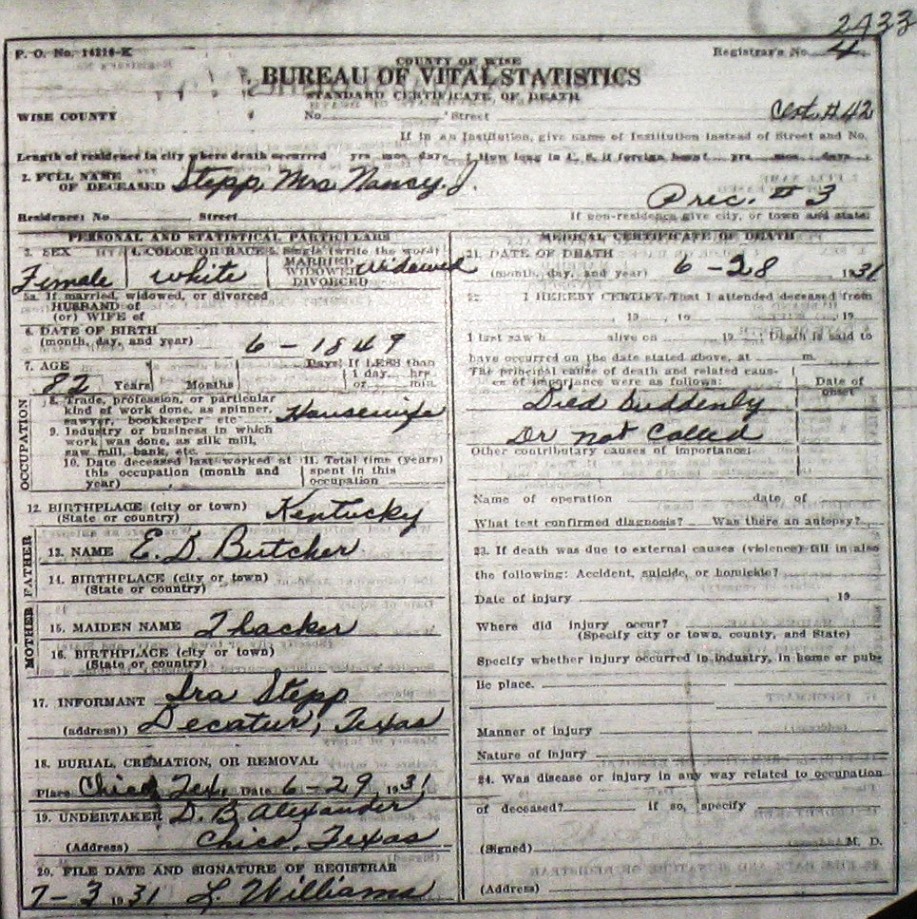 2433
P. O. No. 14216-K
Registrar's No. 4
COUNTY OF WISE
BUREAU OF VITAL STATISTICS
STANDARD CERTIFICATE OF DEATH
WISE COUNTY No. Street
#42
If in an Institution, give name of Institution instead of Street and No.
Length of residence in city where death occurred yrs. mos. days. How long in U. S. if foreign born? yrs. mos. days.
2. FULL NAME
OF DECEASED Stepp Mrs Nancy. J.
Prec. #3
Residence: No Street If non-residence give city, or town and state.
PERSONAL AND STATISTICAL PARTICULARS
3. SEX
Female
4. COLOR OR RACE
white
5. Single (write the word)
MARRIED
WIDOWED Widowed
DIVORCED
5a. If married, widowed, or divorced
HUSBAND of
(or) WIFE of
6. DATE OF BIRTH
(month, day, and year) 6-1849
7. AGE
82 Years Months Days If LESS than
1 day hrs.
or min.
OCCUPATION
8. Trade, profession, or particular
kind of work done, as spinner,
sawyer, bookkeeper etc Housewife
9. Industry or business in which
work was done, as silk mill,
saw mill, bank, etc.
10. Date deceased last worked at
this occupation (month and
year)
11. Total time (years)
spent in this
occupation
12. BIRTHPLACE (city or town) Kentucky
(State or country)
FATHER
13. NAME E. D. Butcher
14. BIRTHPLACE (city or town)
(State or country)
MOTHER
15. MAIDEN NAME Thacker
16. BIRTHPLACE (city or town)
(State or country)
17. INFORMANT Ira Stepp
(address) Decatur, Texas
18. BURIAL, CREMATION, OR REMOVAL
Place Chico Tex. Date 6-29, 1931
19. UNDERTAKER D. B. Alexander
(Address) Chico, Texas
20. FILE DATE AND SIGNATURE OF REGISTRAR
7-3 1931 L. Williams
MEDICAL CERTIFICATE OF DEATH
21. DATE OF DEATH
(month, day, and year) 6-28 1931
22. I HEREBY CERTIFY, That I attended deceased from
, 19 , to , 19
I last saw h alive on 19 Death is said to
have occurred on the date stated above, at m.
The principal cause of death and related caus-
es of importance were as follows:
Date of
onset
Died Suddenly
Dr not Called
Other contributory causes of importance:
Name of operation date of
What test confirmed diagnosis? Was there an autopsy?
23. If death was due to external causes (violence) fill in also
the following: Accident, suicide, or homicide?
Date of injury , 19
Where did injury occur?
(Specify city or town, county, and State)
Specify whether injury occurred in industry, in home or pub-
lic place.
Manner of injury
Nature of injury
24. Was disease or injury in any way related to occupation
of deceased? if so, specify
(Signed) M. D.
(Address)